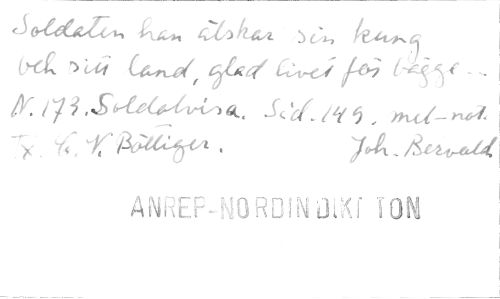 Soldaten han älskar sin kung
och sitt land, glad livet för bägge...
N. 173. Soldatvisa. Sid. 149. mel-not.
Tx. C. V. Böttiger. Joh. Berwald
ANREP-NORDIN DIKT TON